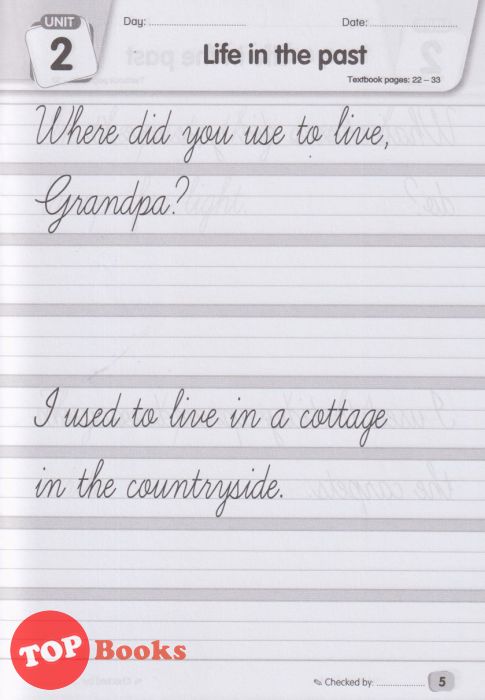 UNIT
2
Day: ........................ Date: ........................
Life in the past
Textbook pages: 22 – 33
Where did you use to live,
Grandpa?
I used to live in a cottage
in the countryside.
TOP Books
✎ Checked by: ................ 5